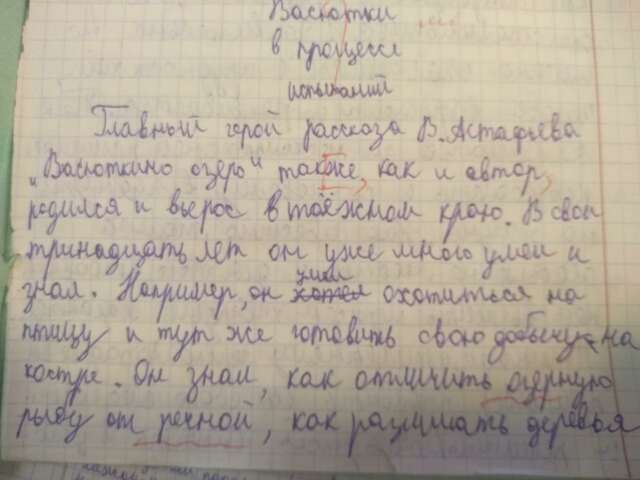 Васютки
в процессе
испытаний
Главный герой рассказа В. Астафьева
„Васюткино озеро" также, как и автор,
родился и вырос в таёжном краю. В свои
тринадцать лет он уже много умел и
знал. Например, он умел хотел охотиться на
птицу и тут же готовить свою добычу на
костре. Он знал, как отличить озерную
рыбу от речной, как различать деревья